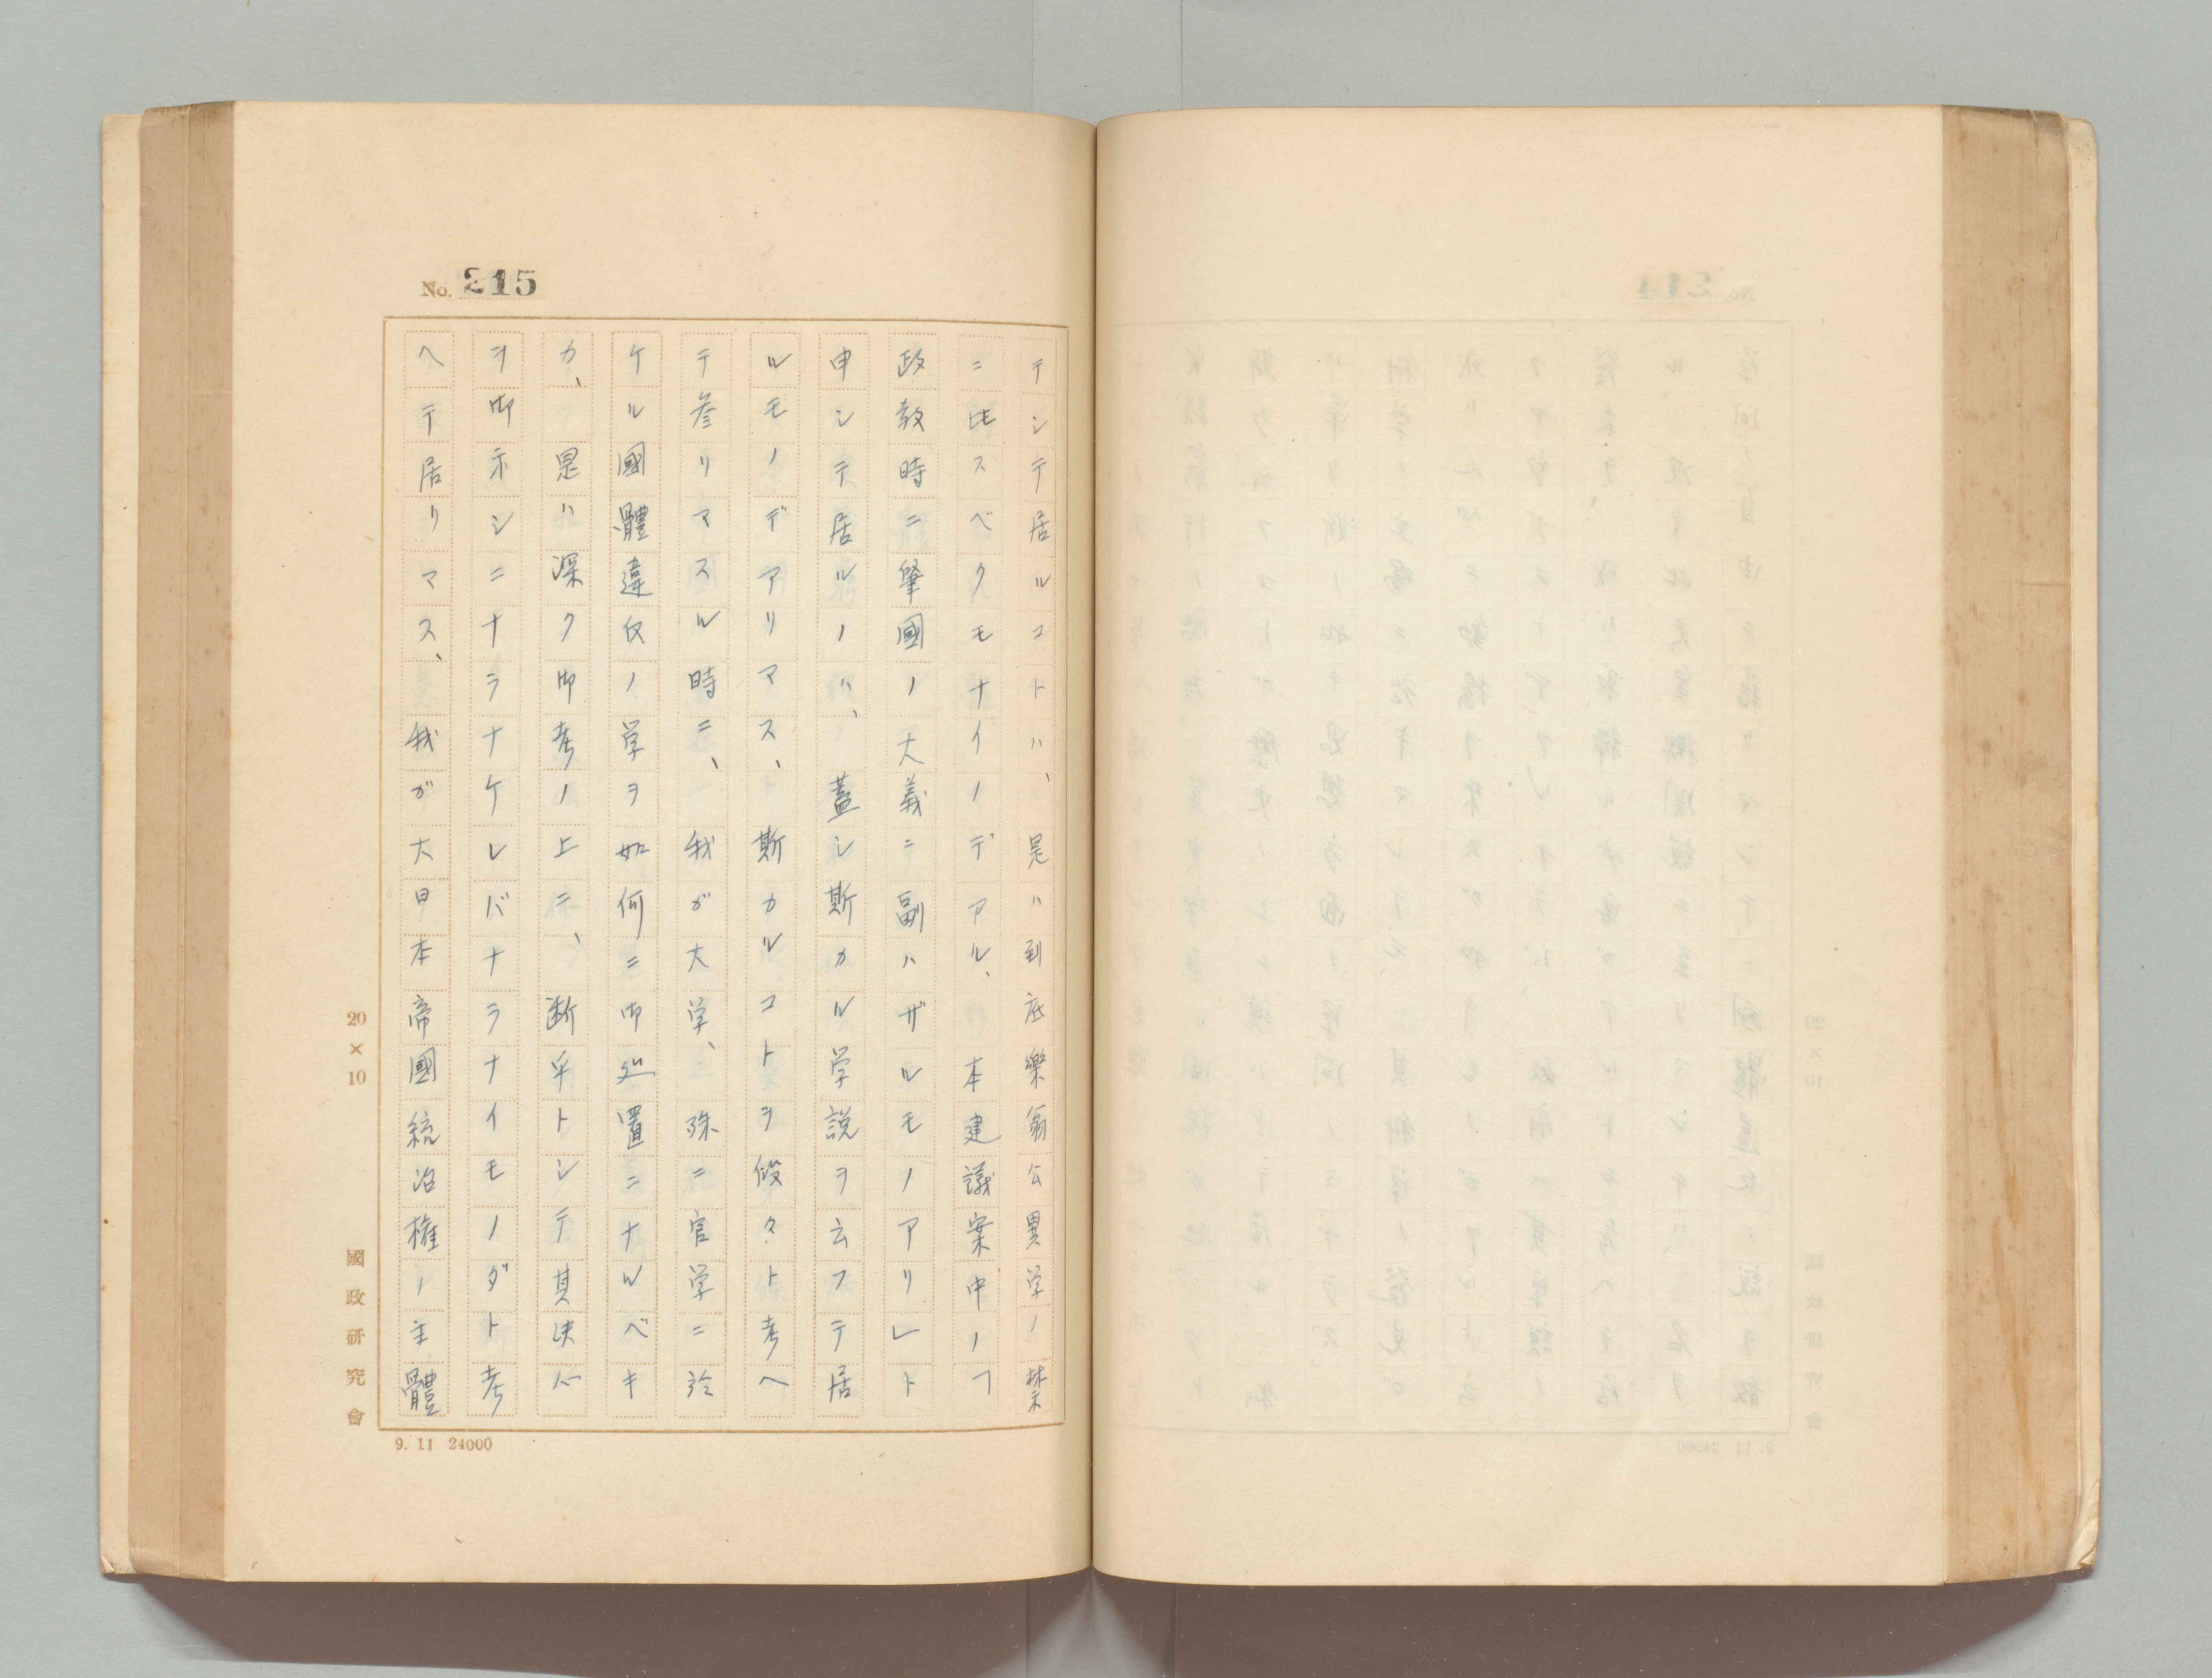 No. 215
テシテ居ルコトハ、是ハ到底樂翁公異学ノ禁
ニ比スベクモナイノデアル、本建議案中ノ「
政教時ニ肇國ノ大義ニ副ハザルモノアリ」ト
申シテ居ルノハ、蓋シ斯カル学説ヲ云フテ居
ルモノデアリマス、斯カルコトヲ段々ト考ヘ
テ参リマスル時ニ、我ガ大学、殊ニ官学ニ於
ケル國體違反ノ学ヲ如何ニ御処置ニナルベキ
カ、是ハ深ク御考ノ上ニ、断乎トシテ其決心
ヲ御示シニナラナケレバナラナイモノダト考
ヘテ居リマス、我ガ大日本帝國統治權ノ主體
20×10
國政研究會
9. 11 24000